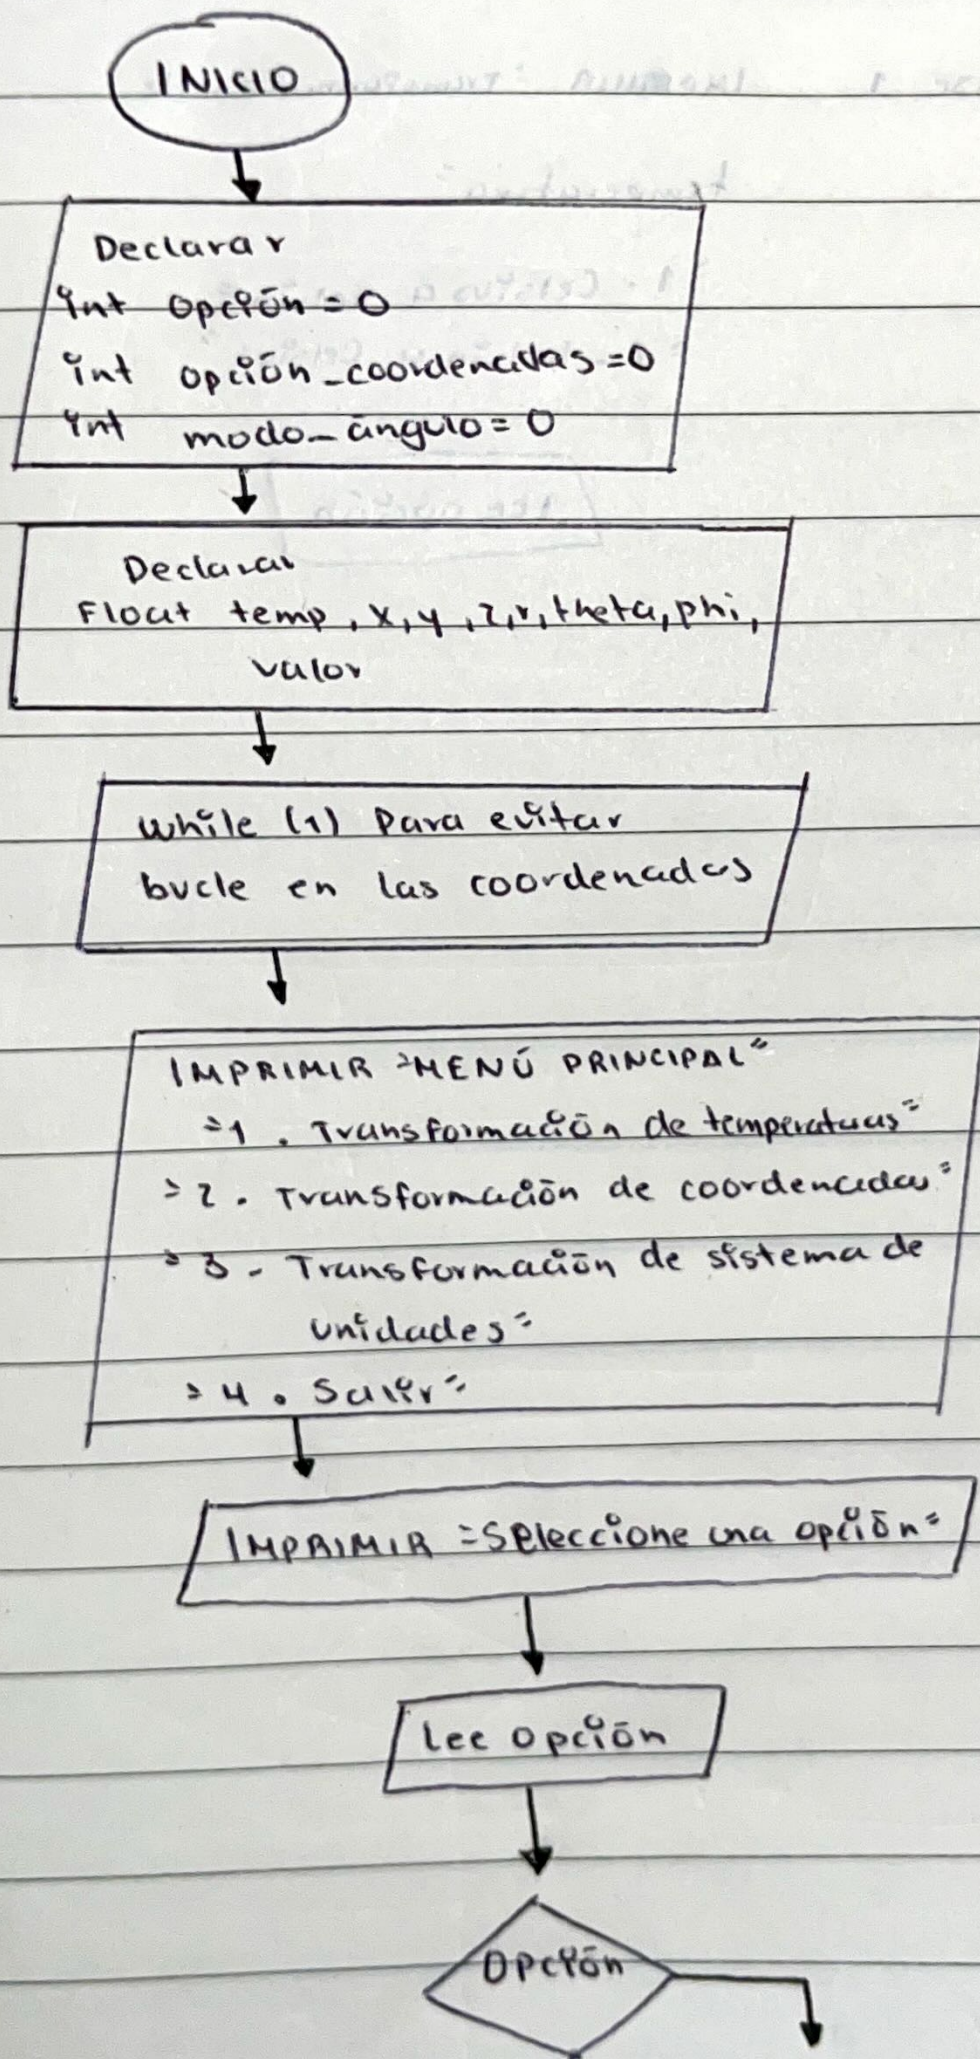 INICIO
Declarar
int opción = 0
int opción_coordenadas = 0
int modo_ángulo = 0
Declarar
Float temp, x, y, z, r, theta, phi,
valor
while (1) Para evitar
bucle en las coordenadas
IMPRIMIR "MENÚ PRINCIPAL"
"1. Transformación de temperaturas"
"2. Transformación de coordenadas"
"3. Transformación de sistema de
unidades"
"4. Salir"
IMPRIMIR "Seleccione una opción"
Lee opción
Opción